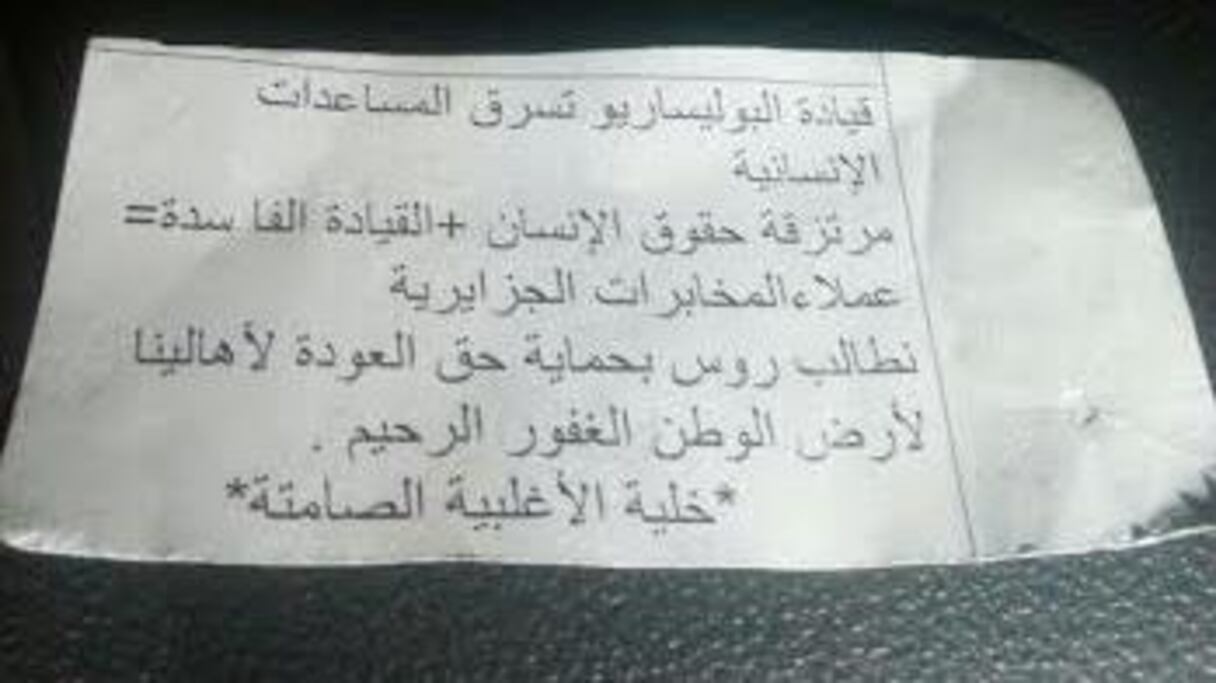 قيادة البوليساريو تسرق المساعدات
الإنسانية
مرتزقة حقوق الإنسان +القيادة الفا سدة=
عملاءالمخابرات الجزايرية
نطالب روس بحماية حق العودة لأهالينا
لأرض الوطن الغفور الرحيم .
*خلية الأغلبية الصامتة*